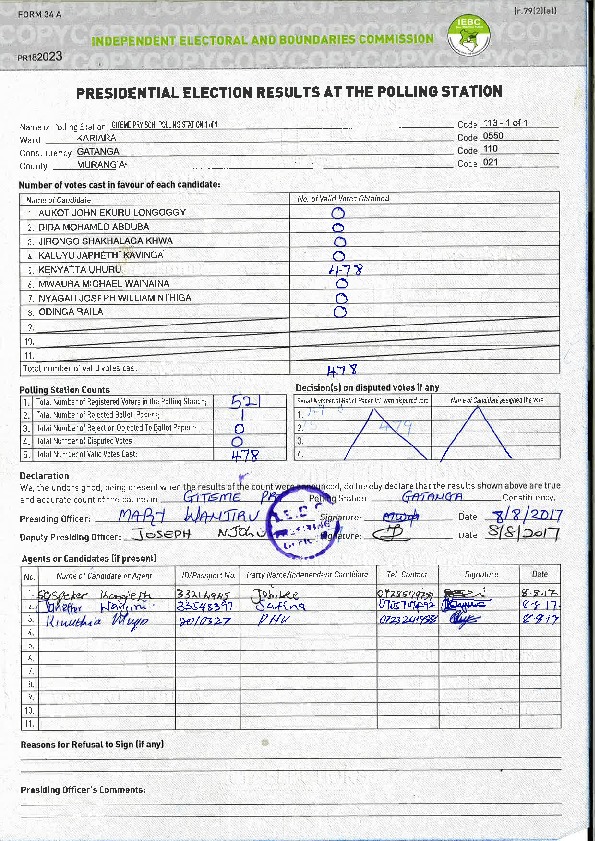 FORM 34 A
(r.79(2)(a))
INDEPENDENT ELECTORAL AND BOUNDARIES COMMISSION
IEBC
PR182023
PRESIDENTIAL ELECTION RESULTS AT THE POLLING STATION
Name of Polling Station GITEME PRY SCH POLLING STATION 1 of 1 Code 113 - 1 of 1
Ward KARIARA Code 0550
Constituency GATANGA Code 110
County MURANG'A Code 021
Number of votes cast in favour of each candidate:
Name of Candidate No. of Valid Votes Obtained
1. AUKOT JOHN EKURU LONGOGGY 0
2. DIDA MOHAMED ABDUBA 0
3. JIRONGO SHAKHALAGA KHWA 0
4. KALUYU JAPHETH KAVINGA 0
5. KENYATTA UHURU 478
6. MWAURA MICHAEL WAINAINA 0
7. NYAGAH JOSEPH WILLIAM NTHIGA 0
8. ODINGA RAILA 0
9.
10.
11.
Total number of valid votes cast 478
Polling Station Counts
1. Total Number of Registered Voters in the Polling Station 521
2. Total Number of Rejected Ballot Papers 1
3. Total Number of Rejection Objected To Ballot Papers 0
4. Total Number of Disputed Votes 0
5. Total Number of Valid Votes Cast 478
Decision(s) on disputed votes if any
Serial Number of Ballot Paper(s) with disputed vote Name of Candidate assigned the vote
2. 479
3.
4.
Declaration
We, the undersigned, being present when the results of the count were announced, do hereby declare that the results shown above are true
and accurate count of the ballots in GITEME PRI Polling Station GATANGA Constituency.
Presiding Officer: MARY WANJIRU Signature: Date 8/8/2017
Deputy Presiding Officer: JOSEPH NJOHU Signature: Date 8/8/2017
Agents or Candidates (if present)
No. Name of Candidate or Agent ID/Passport No. Party Name/Independent Candidate Tel. Contact Signature Date
1. Jubilee 8.8.17
2. 23548397 8.8.17
3. Kinuthia 2010327 8.8.17
4.
5.
6.
7.
8.
9.
10.
11.
Reasons for Refusal to Sign (if any)
Presiding Officer's Comments: